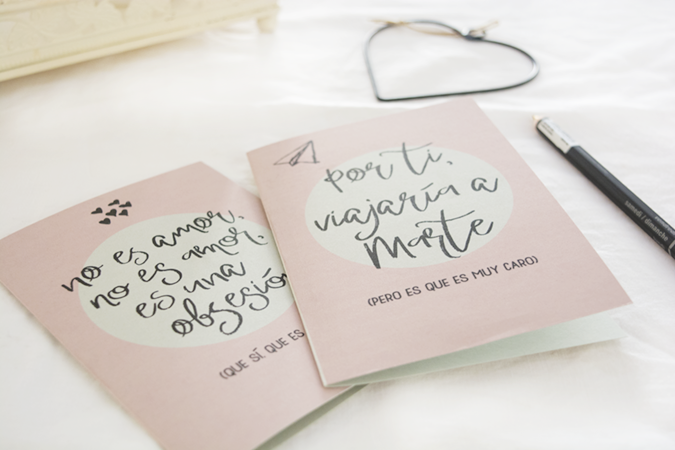 no es amor,
no es amor.
es una
obsesión
(QUE SÍ, QUE ES
por ti,
viajaría a
Marte
(PERO ES QUE ES MUY CARO)
samedi / dimanche